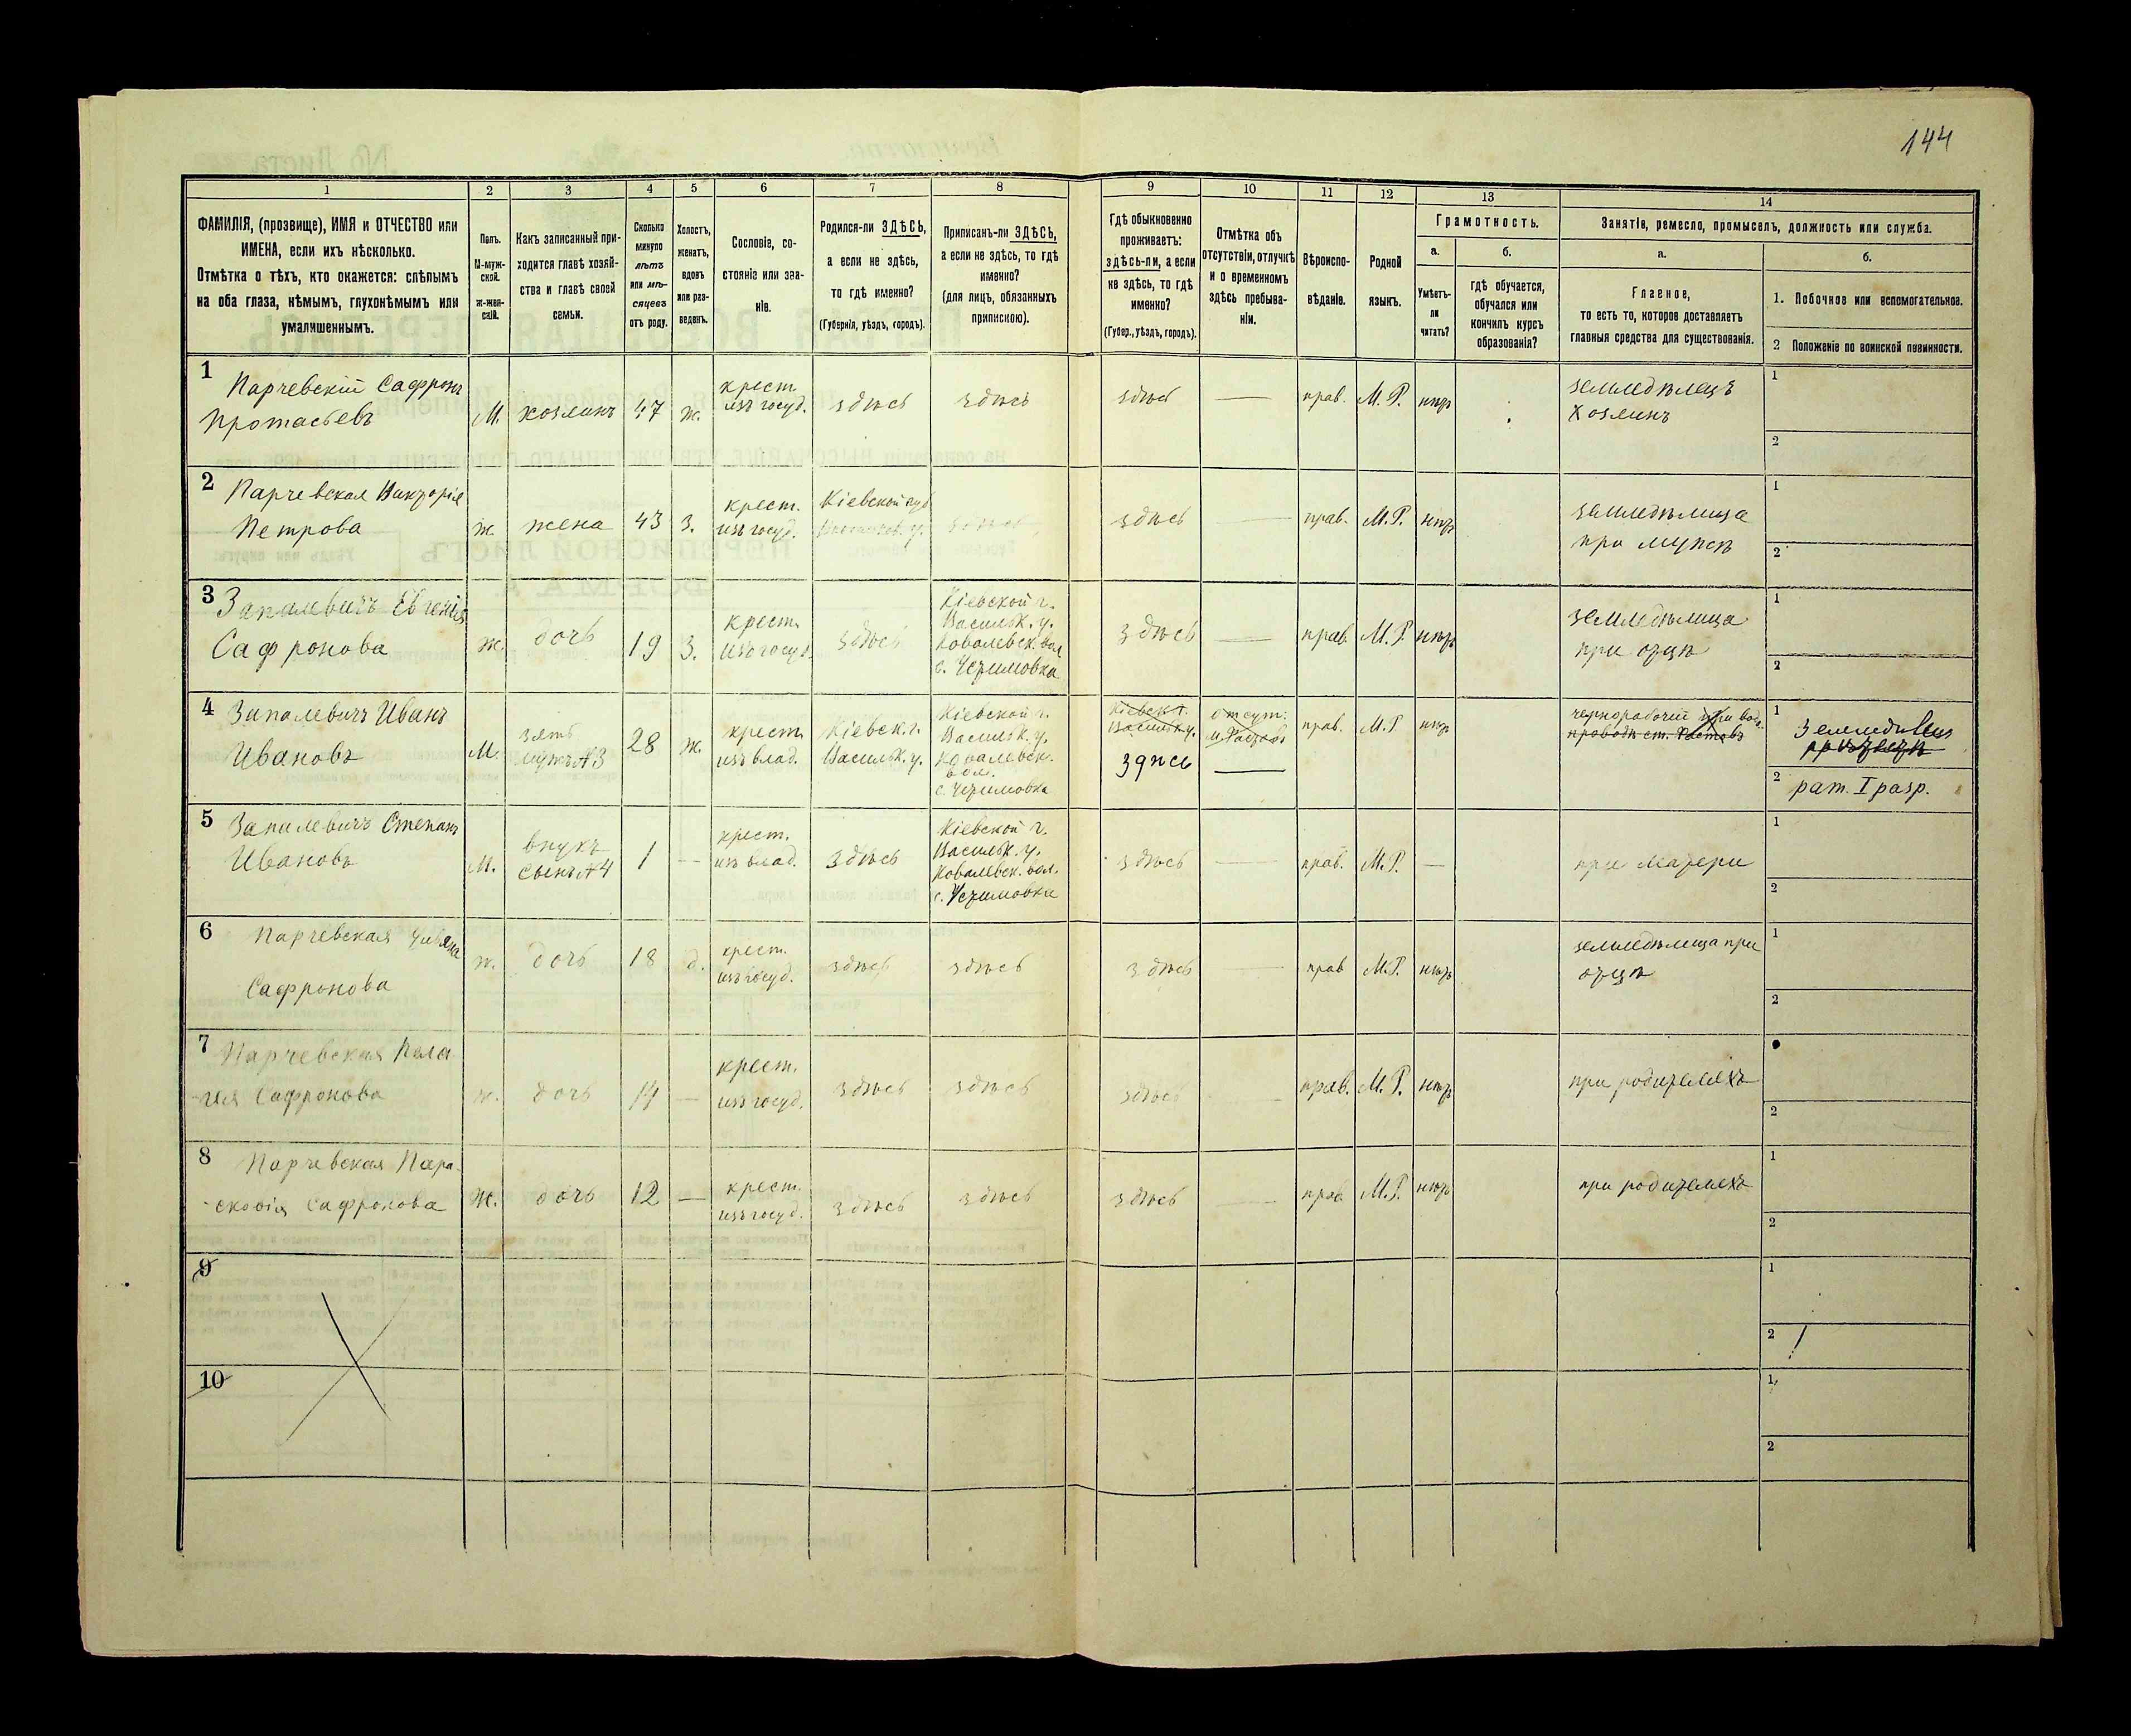 144
1 2 3 4 5 6 7 8 9 10 11 12 13 14
ФАМИЛІЯ, (прозвище), ИМЯ и ОТЧЕСТВО или
ИМЕНА, если ихъ нѣсколько.
Отмѣтка о тѣхъ, кто окажется: слѣпымъ
на оба глаза, нѣмымъ, глухонѣмымъ или
умалишеннымъ.
Полъ.
М-муж-
ской.
ж-жен-
скій.
Какъ записанный при-
ходится главѣ хозяй-
ства и главѣ своей
семьи.
Сколько
минуло
лѣтъ
или мѣ-
сяцевъ
отъ роду.
Холостъ,
женатъ,
вдовъ
или раз-
веденъ.
Сословіе, со-
стояніе или зва-
ніе.
Родился-ли ЗДѢСЬ,
а если не здѣсь,
то гдѣ именно?
(Губернія, уѣздъ, городъ).
Приписанъ-ли ЗДѢСЬ,
а если не здѣсь, то гдѣ
именно?
(для лицъ, обязанныхъ
припискою).
Гдѣ обыкновенно
проживаетъ:
здѣсь-ли, а если
не здѣсь, то гдѣ
именно?
(Губер., уѣздъ, городъ).
Отмѣтка объ
отсутствіи, отлучкѣ
и о временномъ
здѣсь пребыва-
ніи.
Вѣроиспо-
вѣданіе.
Родной
языкъ.
Грамотность.
а.
Умѣетъ-
ли
читать?
б.
гдѣ обучается,
обучался или
кончилъ курсъ
образованія?
Занятіе, ремесло, промыселъ, должность или служба.
а.
Главное,
то есть то, которое доставляетъ
главныя средства для существованія.
б.
1. Побочное или вспомогательное.
2 Положеніе по воинской повинности.
1
Парчевскій Сафронъ
Протасьевъ
М. хозяинъ 47 ж.
крест.
изъ госуд.
здѣсь здѣсь здѣсь — прав. М. Р. нѣтъ
земледѣлецъ
хозяинъ
1
2
2
Парчевская Викторія
Петрова
ж. жена 43 з.
крест.
изъ госуд.
Кіевской губ
здѣсь прав. М.Р. нѣтъ
земледѣлица
при мужѣ
1
2
3
Запалевичъ Евгенія
Сафронова
ж. дочь 19 з.
крест.
изъ госуд.
здѣсь
Кіевской г.
Васильк. у.
Ковалевск. вол
с. Устимовка
здѣсь — прав. М.Р. нѣтъ
земледѣлица
при отцѣ
1
2
4
Запалевичъ Иванъ
Ивановъ
М.
зять
мужъ №3
28 ж.
крест.
изъ влад.
Кіевск. г.
Васильк. у.
Кіевской г.
Васильк. у.
Ковалевск.
вол.
с. Устимовка
Кіевск. г.
Васильк. у.
здѣсь
отсут.
—
прав. М.Р. нѣтъ
чернорабочій при водо-
проводѣ ст. Фастовъ
1
земледѣлецъ
2 рат. I разр.
5
Запалевичъ Степанъ
Ивановъ
М.
внукъ
сынъ №4
1 —
крест.
изъ влад.
здѣсь
Кіевской г.
Васильк. у.
Ковалевск. вол.
с. Устимовка
здѣсь — прав. М.Р. —
при матери
1
2
6
Парчевская
Сафронова
ж. дочь 18 д.
крест.
изъ госуд.
здѣсь здѣсь здѣсь — прав М.Р. нѣтъ
земледѣлица при
отцѣ
1
2
7
Парчевская Пела
-гея Сафронова
ж. дочь 14 —
крест.
изъ госуд.
здѣсь здѣсь здѣсь — прав. М.Р. нѣтъ
при родителяхъ
2
8
Парчевская Пара-
-сковія Сафронова
ж. дочь 12 —
крест.
изъ госуд.
здѣсь здѣсь здѣсь — прав М.Р. нѣтъ
при родителяхъ
1
2
9
1
2
10
1
2